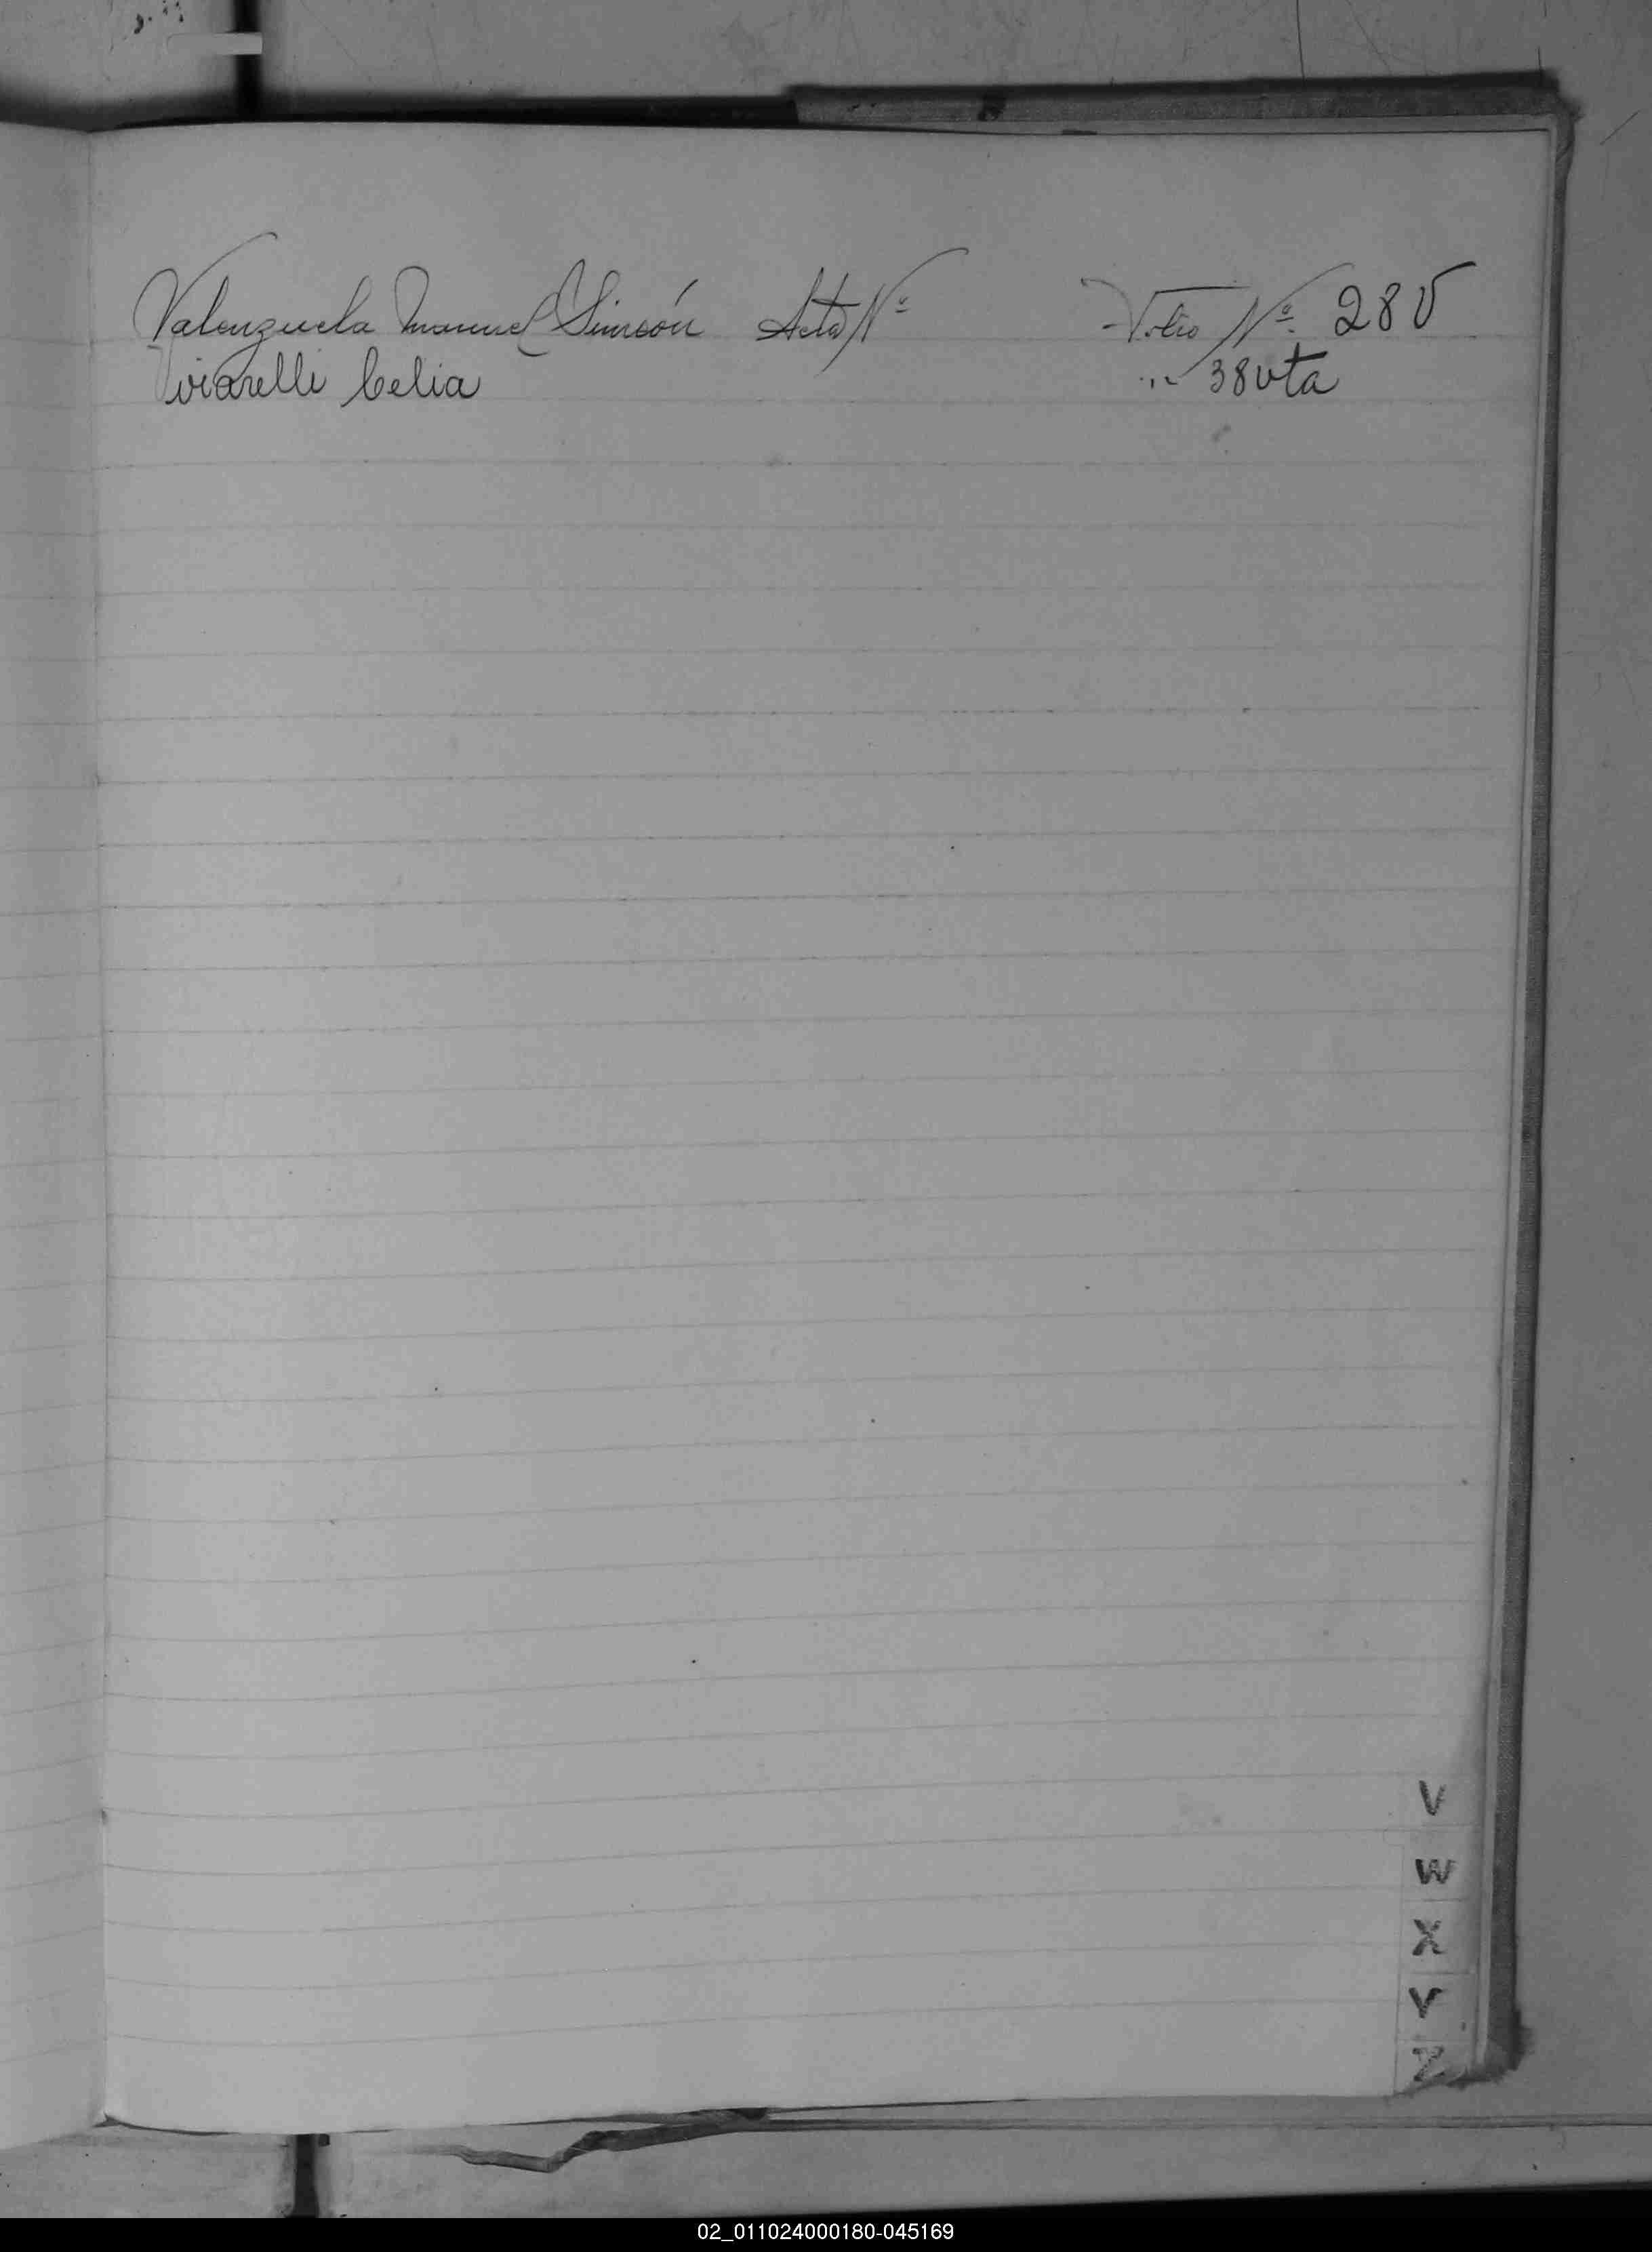 Valenzuela Manuel Simeón Acta Nº Folio Nº 28 V
Viviarelli Celia " " 38 vta
V
W
X
Y
Z
02_011024000180-045169